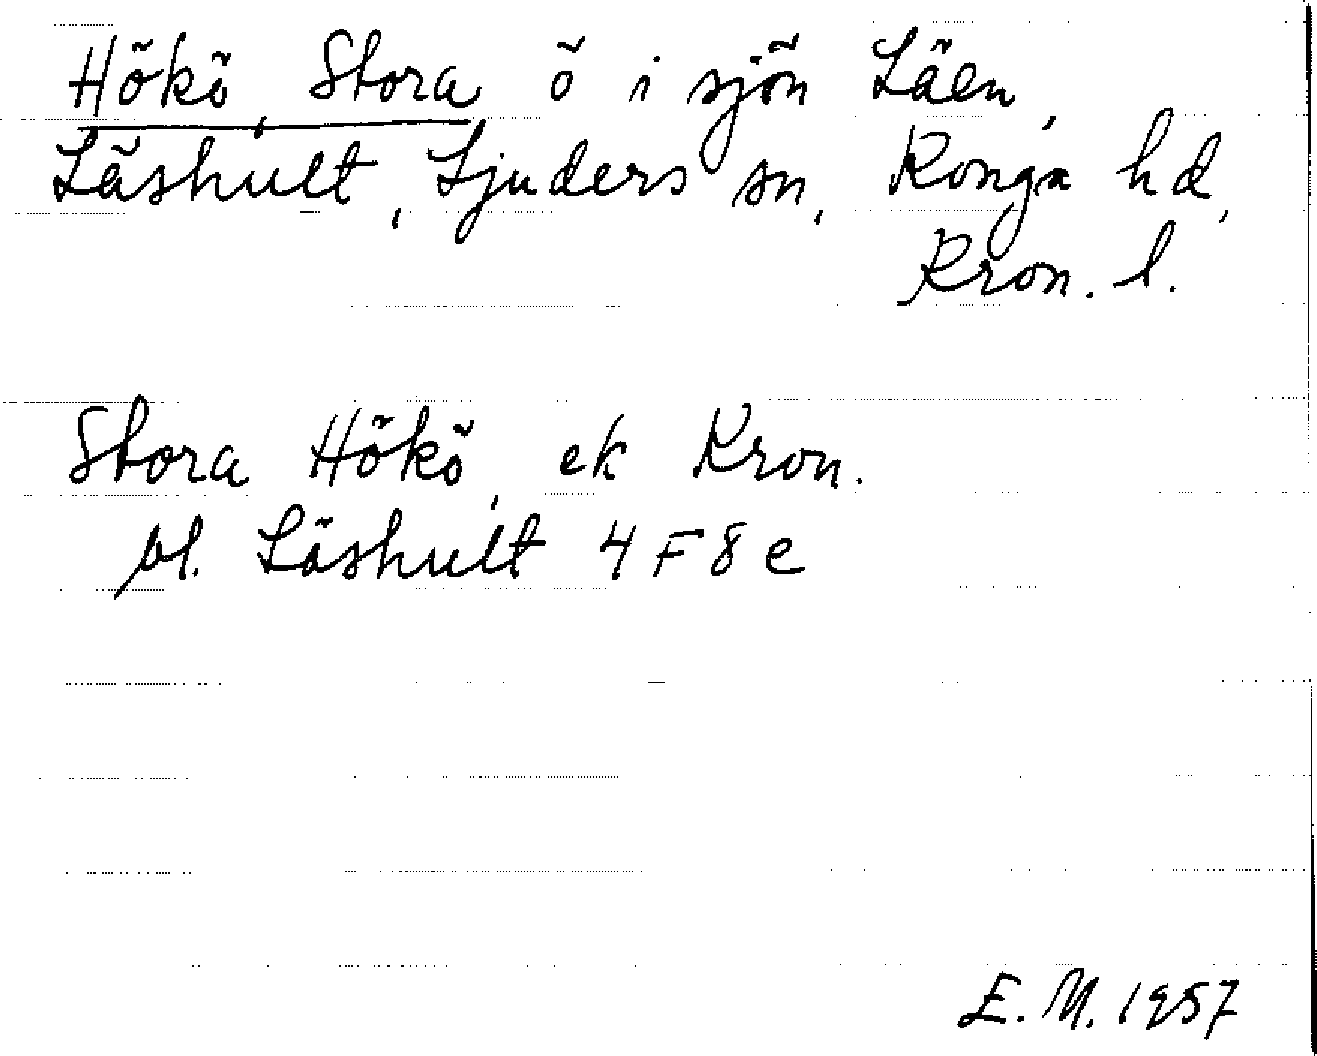 Hökö, Stora, ö i sjön Läen,
Läshult, Ljuders sn, Konga hd,
Kron. l.
Stora Hökö, ek Kron.
bl. Läshult 4F8e
E.M. 1957